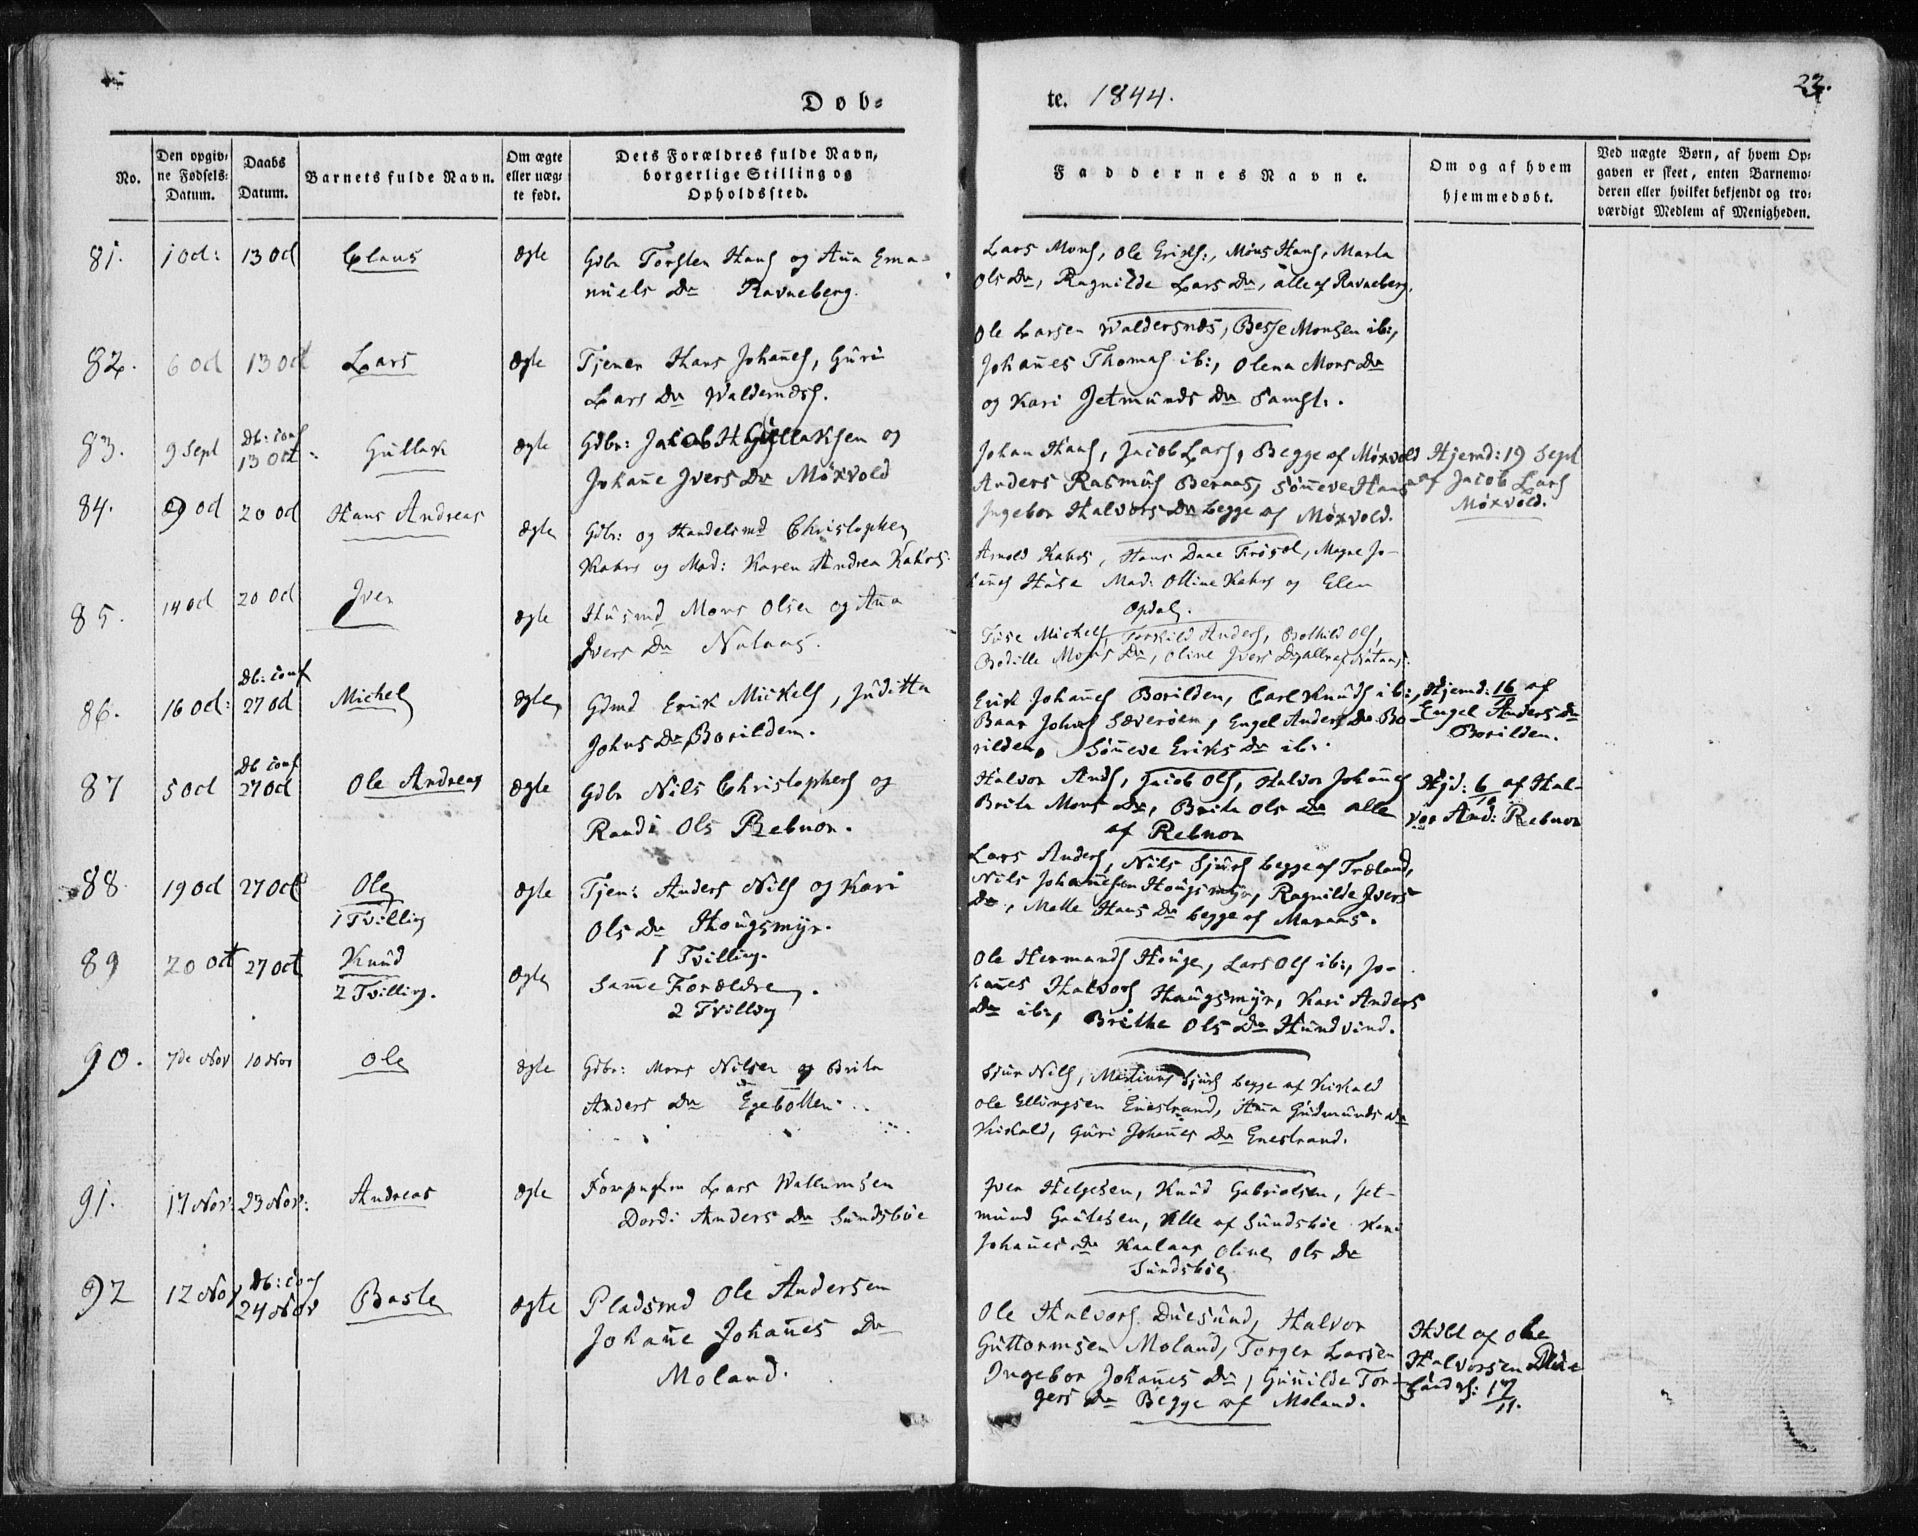 Døb-
te. 1844.
23.
No.
Den opgiv-
ne Fødsels-
Datum.
Daabs
Datum.
Barnets fulde Navn.
Om ægte
eller uæg-
te født.
Dets Forældres fulde Navn,
borgerlige Stilling og
Opholdssted.
Faddernes Navne.
Om og af hvem
hjemmedøbt.
Ved uægte Børn, af hvem Op-
gaven er skeet, enten Barnemo-
deren eller hvilket bekjendt og tro-
værdigt Medlem af Menigheden.
81. 1 Oct: 13 Oct Claus ægte
Gdbr Torsten Hans og Aña Ema-
nuels Dr Ravneberg.
Lars Mons, Ole Eriks:, Mons Hans, Marta
Ols Dr, Ragnilde Lars Dr, alle af Ravneberg.
82. 6 Oct 13 Oct Lars ægte
Tjener Hans Johañes, Guri
Lars Dr Waldernæs.
Ole Larsen Waldersnæs, Besse Monsen ib:,
Johañes Thomas ib:, Olena Mons Dr
og Kari Jetmunds Dr samst:.
83. 9 Sept Db: conf 13 Oct. Gullak ægte
Gdbr: Jacob Gullaksen og
Johañe Ivers Dr Møxvold
Johan Hans, Jacob Lars, Begge af Møxvold
Anders Rasmus Beraas, Søñeve Hans
Ingebor Halvors Dr begge af Møxvold.
Hjemd: 19 Sept
af Jacob Lars
Møxvold.
84. 9 Oct 20 Oct Hans Andreas ægte
Gdbr: og Handelsmd Christopher
Kahrs og Mad: Karen Andrea Kahrs.
Arnold Kahrs, Hans Daae Frøsol, Magne Jo-
hañes Huse Mad: Olline Kahrs og Elen
Opdal.
85. 14 Oct 20 Oct Iver ægte
Husmd Mons Olsen og Aña
Ivers Dr Nataas.
Tøse Michels, Torkild Anders, Bothild Ols,
Bodille Mons Dr, Oline Ivers Dr, alle af Nataas.
86. 16 Oct: Db: conf 27 Oct Michel ægte
Gdmd Erik Mickels, Juditta
Johns Dr Borilden.
Erik Johañes Borilden, Carl Knuds ib:,
Baar Johns Sæverøen, Engel Anders Dr Bo-
rilden, Søñeve Eriks Dr ib:.
Hjemd: 16 af
Engel Anders Dr
Borilden.
87 5 Oct Db conf 27 Oct Ole Andreas ægte
Gdbr Nils Christophers og
Randi Ols Rebnor.
Halvor Ands, Jacob Ols, Halvor Johañes
Brita Mons Dr, Brita Ols Dr alle
af Rebnor
Hjd: 6/10 af Hal-
vor And: Rebnor
88. 19 Oct 27 Oct Ole ægte
1 Tvilling
Tjen: Anders Nils og Kari
Ols Dr Hougsmyr.
1 Tvilling.
Lars Anders, Nils Sjurs begge af Træland,
Nils Johañesen Hougsmyr, Ragnilde Ivers
Dr, Malle Hans Dr begge af Maraas.
89 20 Oct 27 Oct Knud ægte
2 Tvilling.
Samme Forældre.
2 Tvilling
Ole Hermands Houge, Lars Ols ib:, Jo-
hañes Halvors Haugsmyr, Kari Anders
Dr ib:, Brithe Ols Dr Hundvind.
90. 7de Nov 10 Nov Ole ægte
Gdbr: Mons Nilsen og Brita
Anders Dr Egebotten.
Sjur Nils, Martinus Sjurs begge af Kirkald
Ole Ellingsen Enestrand, Aña Gudmunds Dr
Kirkald, Guri Johañes Dr Enestrand.
91. 17 Nov: 23 Nov: Andreas ægte
Lars Wallumsen
Dordi Anders Dr Sundsbøe
Iver Helgesen, Knud Gabrielsen, Jet-
mund Gautesen, Alle af Sundsbøe Kari
Johañes Dr Kaalaas, Oline Ols Dr
Sundsbøe
92 12 Nov Db: conf 24 Nov Baste ægte
Pladsmd Ole Andersen
Johañe Johañes Dr
Moland.
Ole Halvors Duesund, Halvor
Guttormsen Moland, Torger Larsen
Ingebor Johañes Dr, Guñilde Tor-
gers Dr Begge af Moland.
Hdbt af Ole
Halvorsen Due
sund d: 17/11.